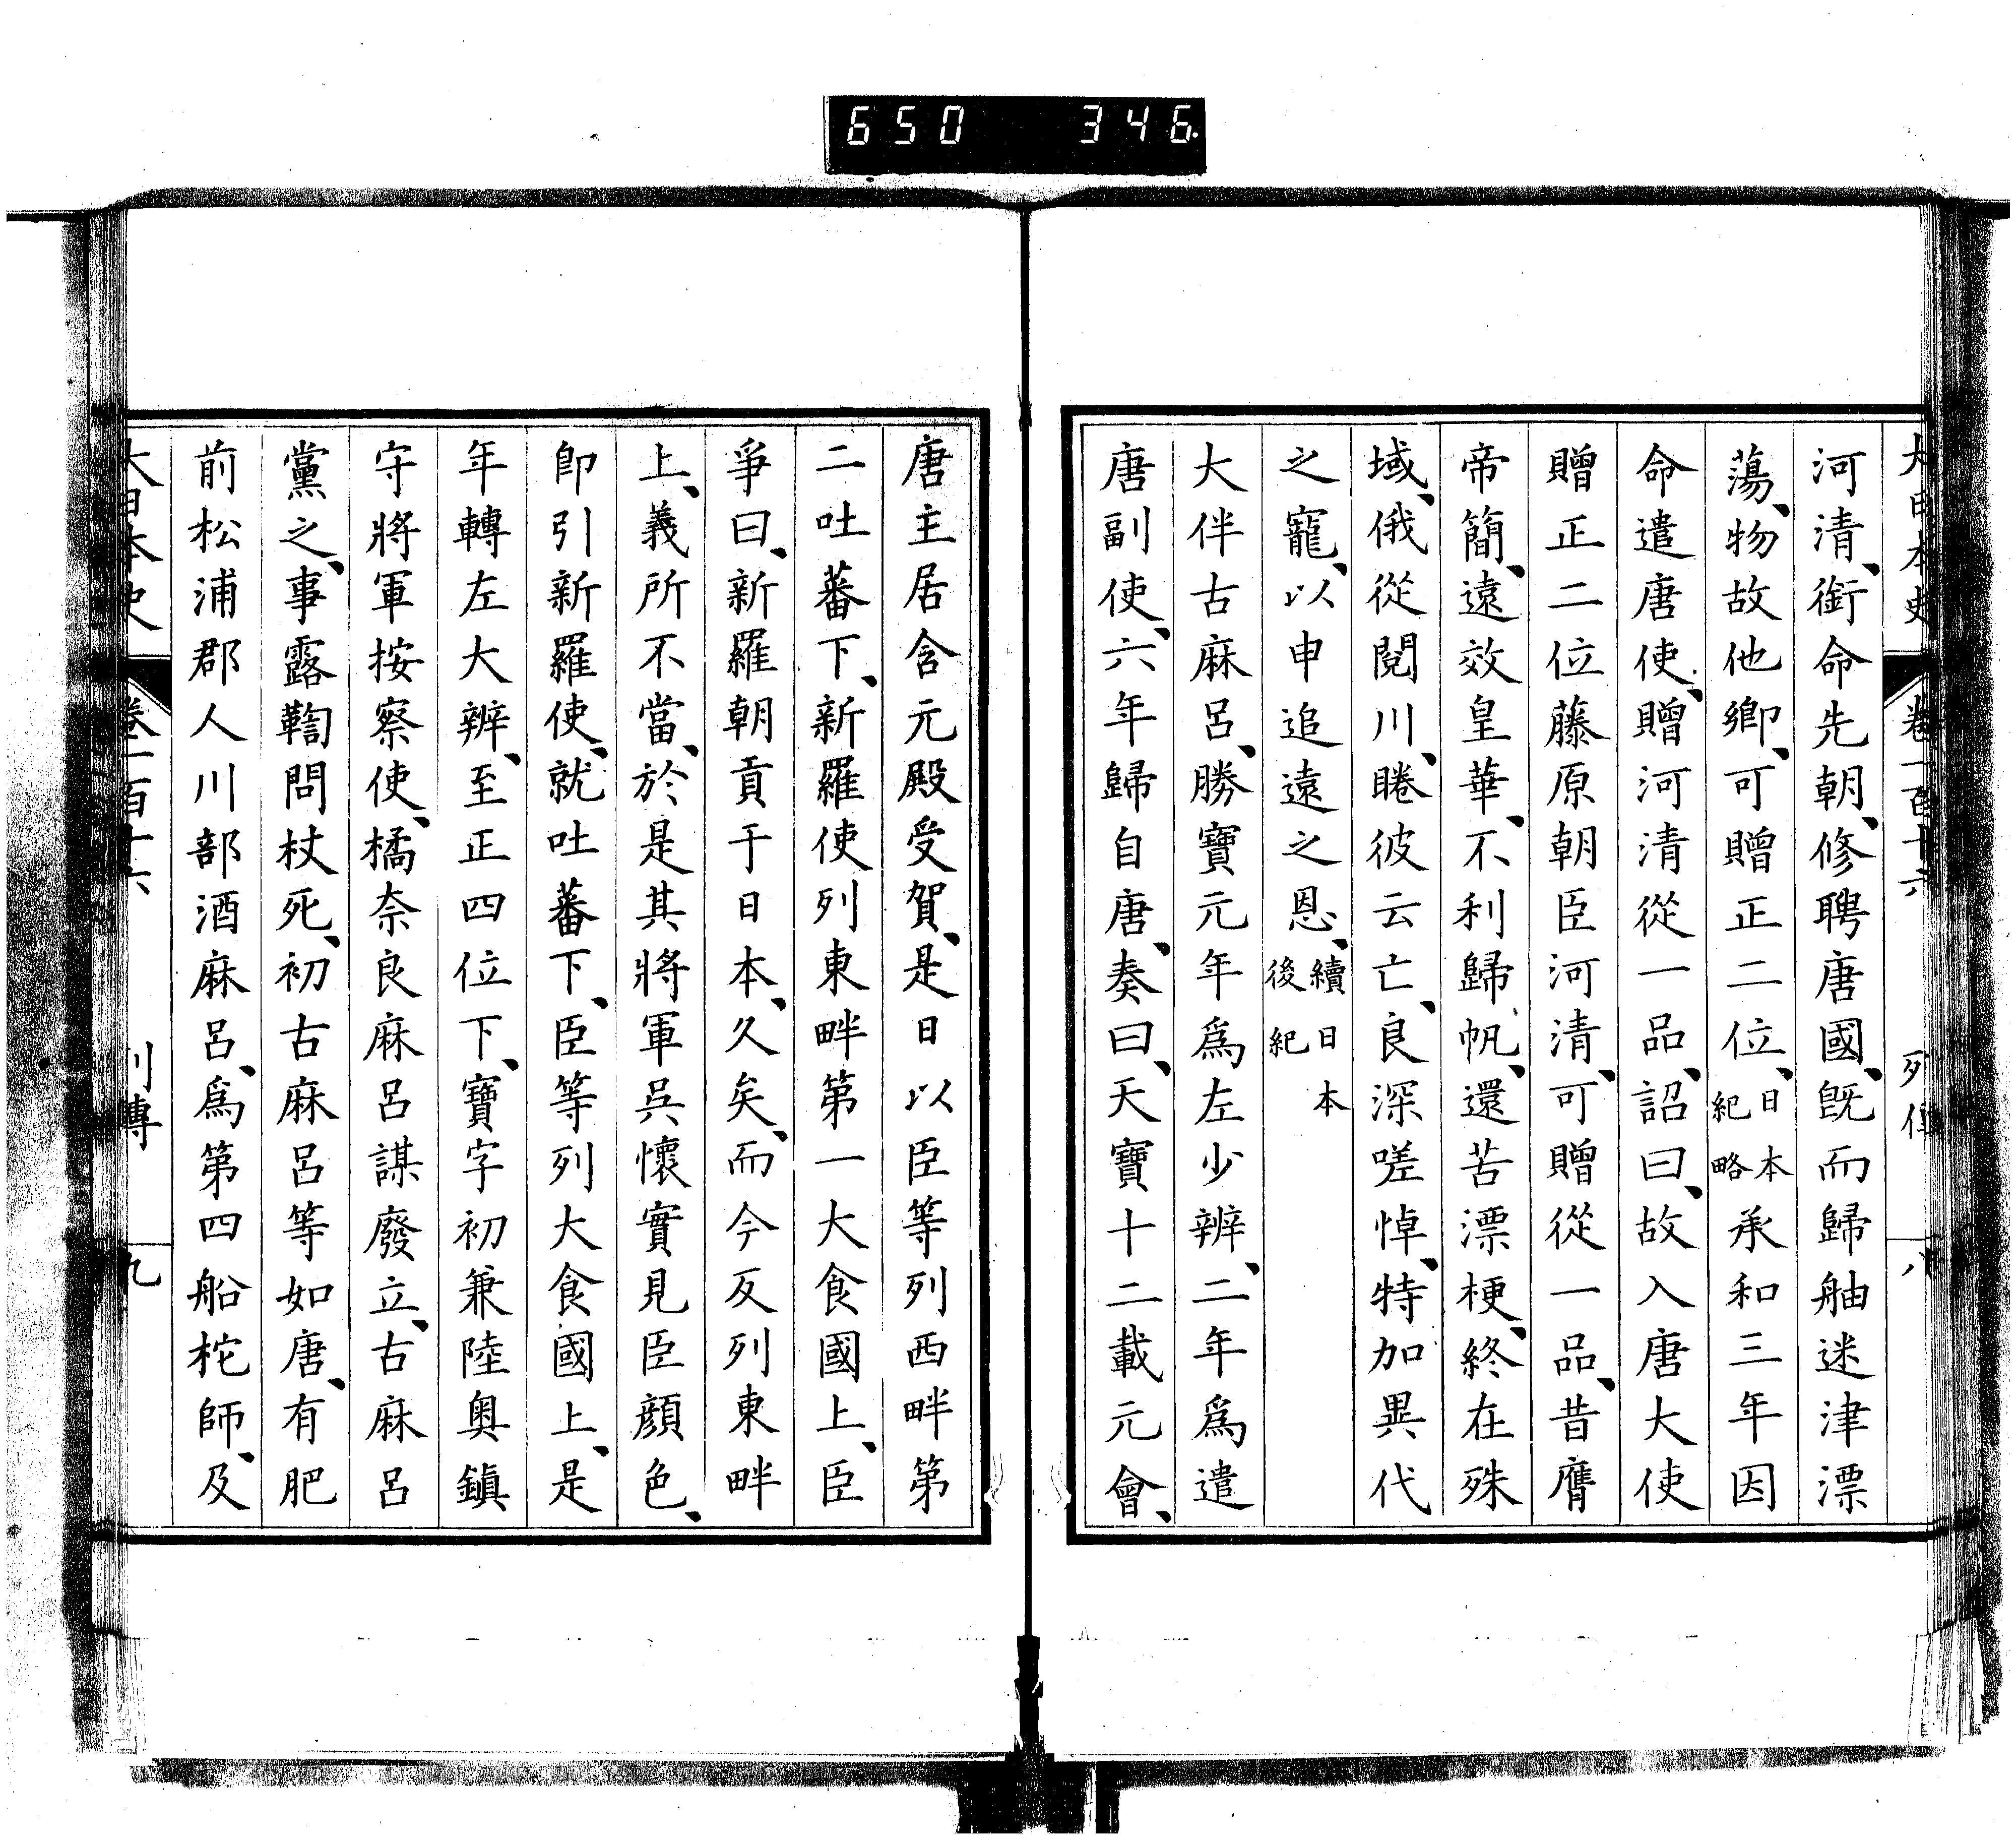 650 346.
大日本史 卷一百十六 列傳 八
河清、銜命先朝、修聘唐國、旣而歸舳迷津漂
蕩、物故他鄉、可贈正二位、日本紀略承和三年因
命遣唐使、贈河清從一品、詔曰、故入唐大使
贈正二位藤原朝臣河清、可贈從一品、昔膺
帝簡、遠效皇華、不利歸帆、還苦漂梗、終在殊
域、俄從閱川、睠彼云亡、良深嗟悼、特加異代
之寵、以申追遠之恩、續日本後紀
大伴古麻呂、勝寶元年爲左少辨、二年爲遣
唐副使、六年歸自唐、奏曰、天寶十二載元會、
唐主居含元殿受賀、是日以臣等列西畔第
二吐蕃下、新羅使列東畔第一大食國上、臣
爭曰、新羅朝貢于日本、久矣、而今反列東畔
上、義所不當、於是其將軍吳懷實見臣顏色、
卽引新羅使、就吐蕃下、臣等列大食國上、是
年轉左大辨、至正四位下、寶字初兼陸奧鎭
守將軍按察使、橘奈良麻呂謀廢立、古麻呂
黨之、事露鞫問杖死、初古麻呂等如唐、有肥
前松浦郡人川部酒麻呂、爲第四船柁師、及
大日本史 卷一百十六 列傳 九